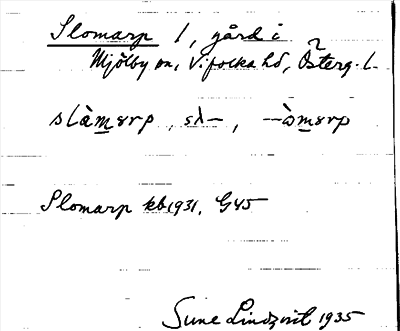 Slomarp 1, gård i
Mjölby sn, Vifolka hd, Österg. l.
slàmarp, sλ—, —òmarp
Slomarp kb 1931, G45
Sune Lindqvist 1935